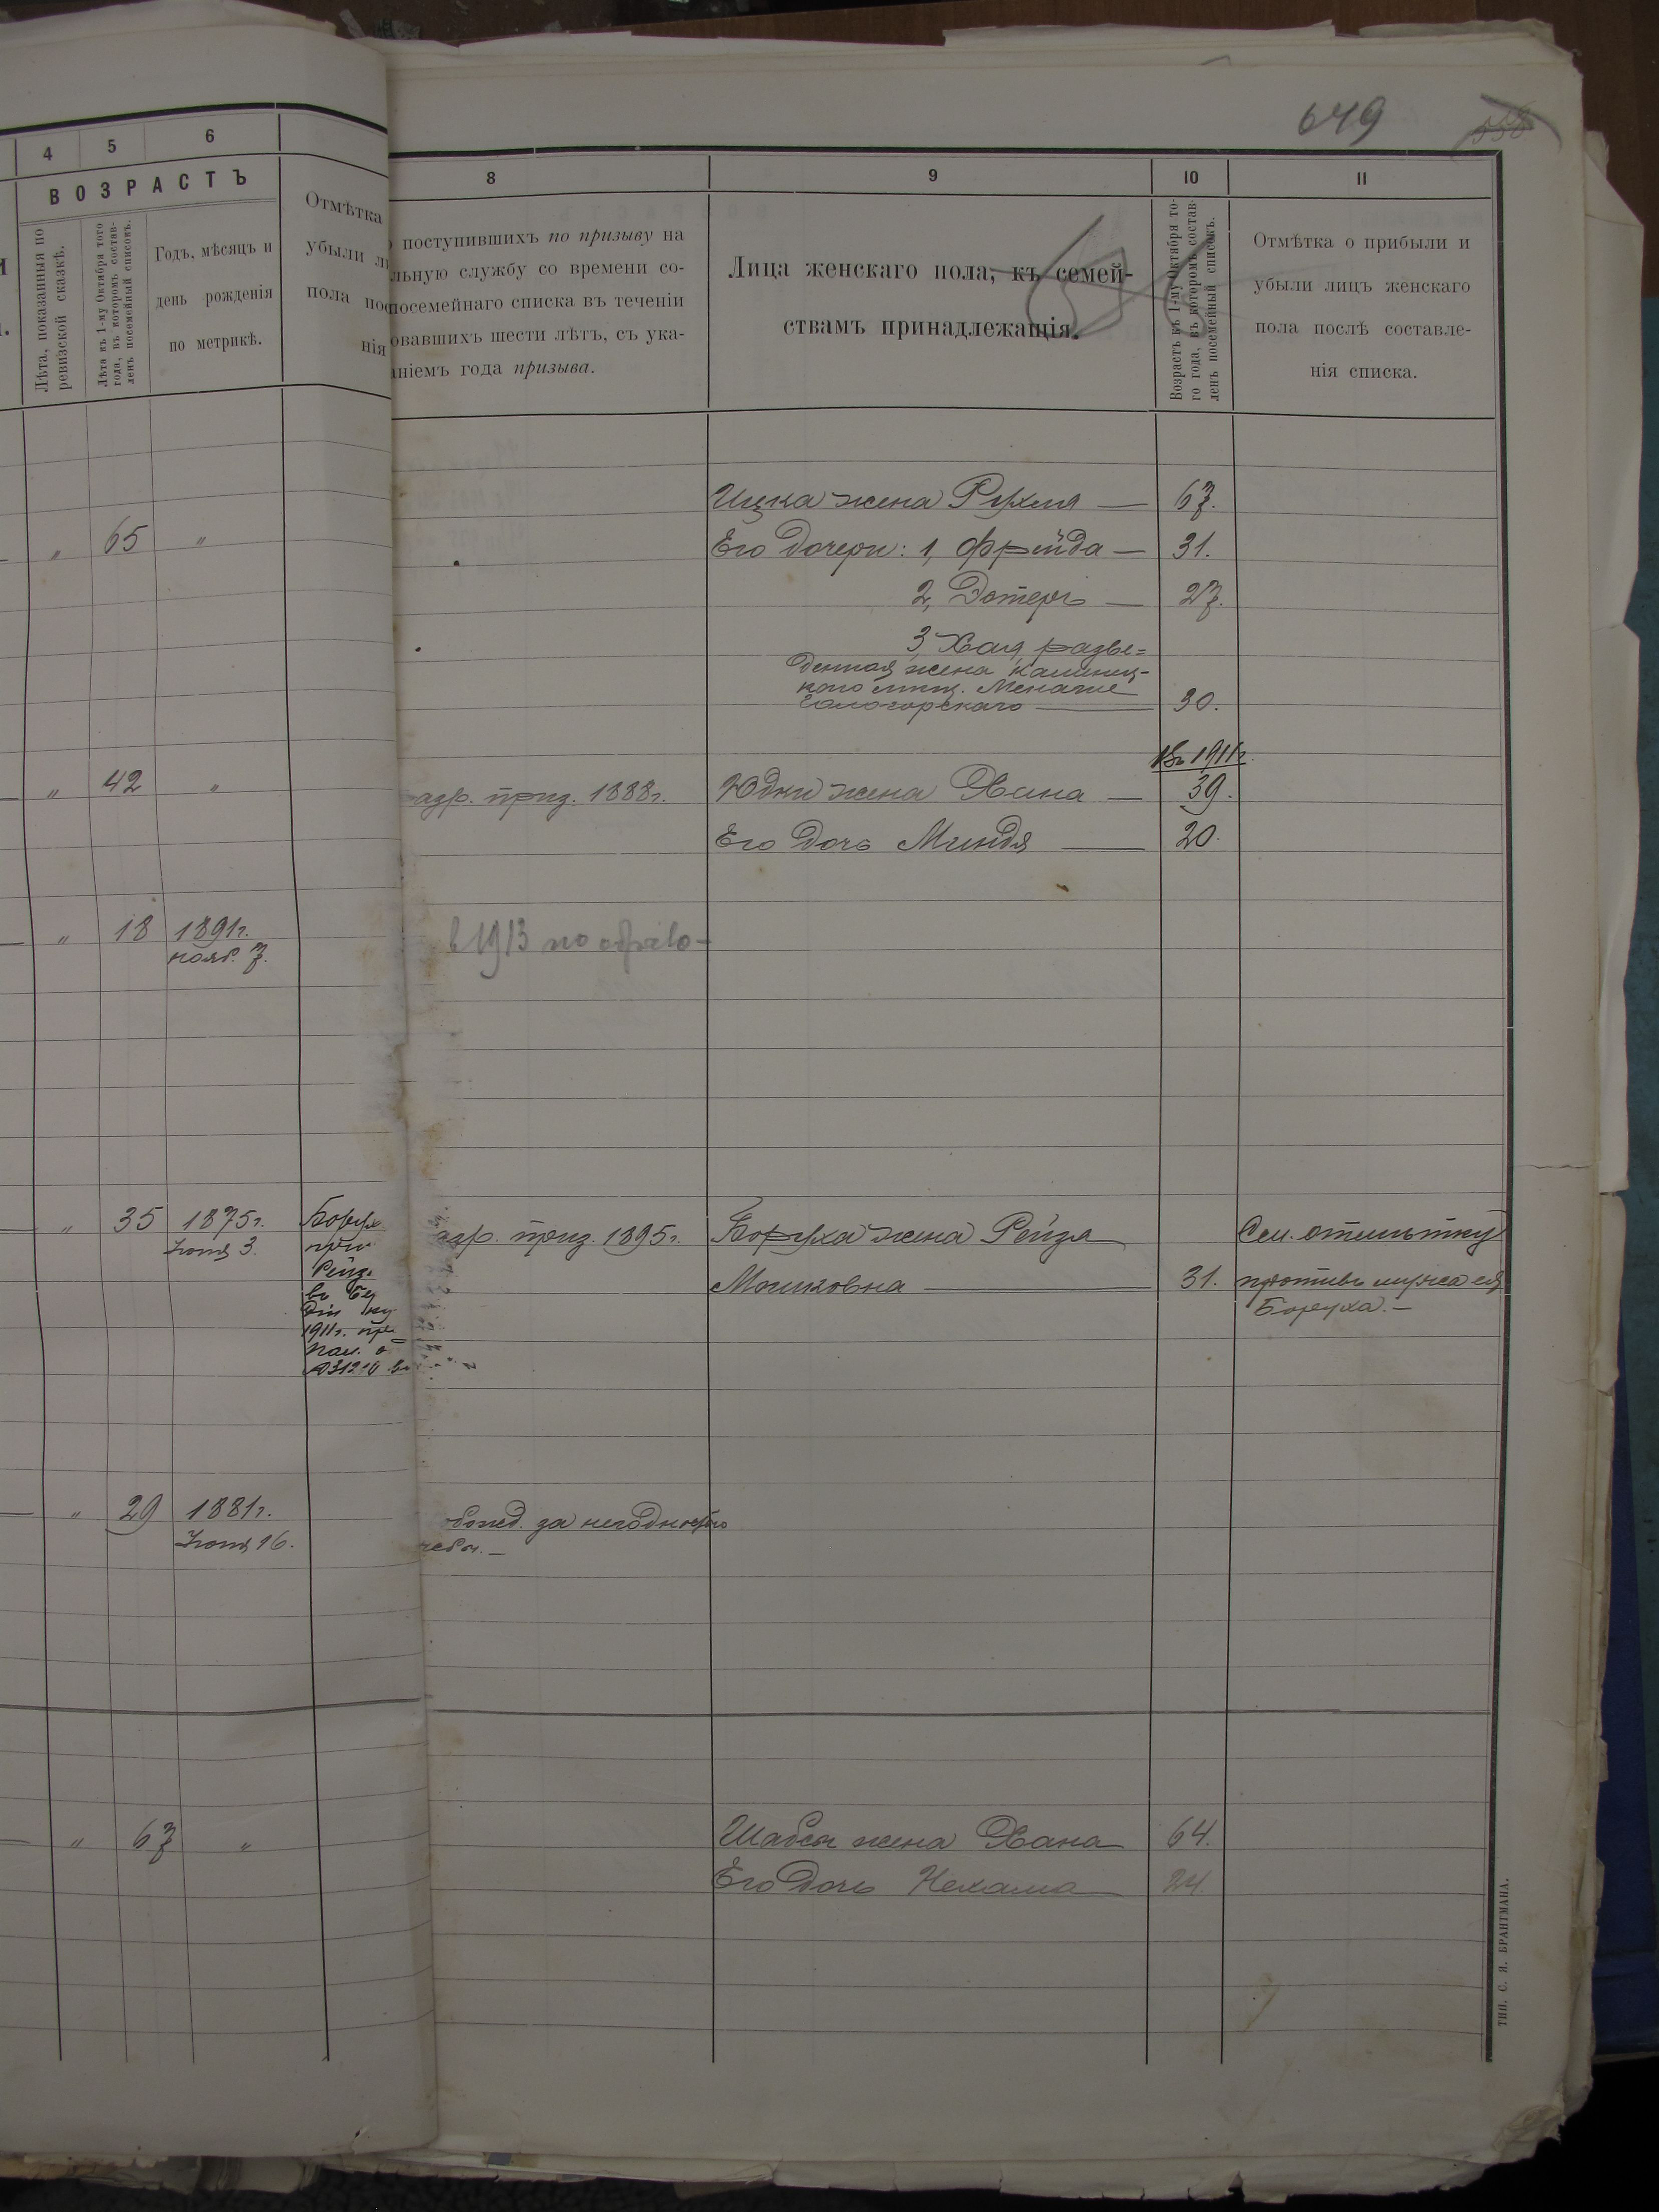 649
4 5 6
ВОЗРАСТЪ
Лѣта, показанныя по
ревизской сказкѣ.
Лѣта къ 1-му Октября того
года, въ которомъ состав-
ленъ посемейный списокъ.
Годъ, мѣсяцъ и
день рожденія
по метрикѣ.
Отмѣтка
убыли
пола
нія
8 9 10 11
поступившихъ по призыву на
льную службу со времени со-
посемейнаго списка въ теченіи
овавшихъ шести лѣтъ, съ ука-
ніемъ года призыва.
Лица женскаго пола, къ семей-
ствамъ принадлежащія.
Возрастъ къ 1-му Октября то-
го года, въ которомъ состав-
ленъ посемейный списокъ.
Отмѣтка о прибыли и
убыли лицъ женскаго
пола послѣ составле-
нія списка.
Ицка жена Рухля — 67.
„ 65 „ Его дочери: 1, Фрейда — 31.
2, Эстеръ — 27.
3, Хая, разве=
денная жена
Менаше
30.
Въ 1911 г.
„ 42 „ приз. 1888 г. Юдки жена Хана — 39.
Его дочь Миндя — 20.
„ 18 1891 г. в 1913
нояб. 7.
„ 35 1875 г. приз. 1895 г. Боруха жена Рейзя См. отмѣтку
Іюня 3. Мошковна — 31. противъ мужа ея
Боруха. —
1911 г.
„ 29 1881 г. за негодностью
Іюня 16.
„ 67 „ Шабси жена Хана — 64.
Его дочь Нехама — 24.
ТИП. С. Я. БРАНТМАНА.